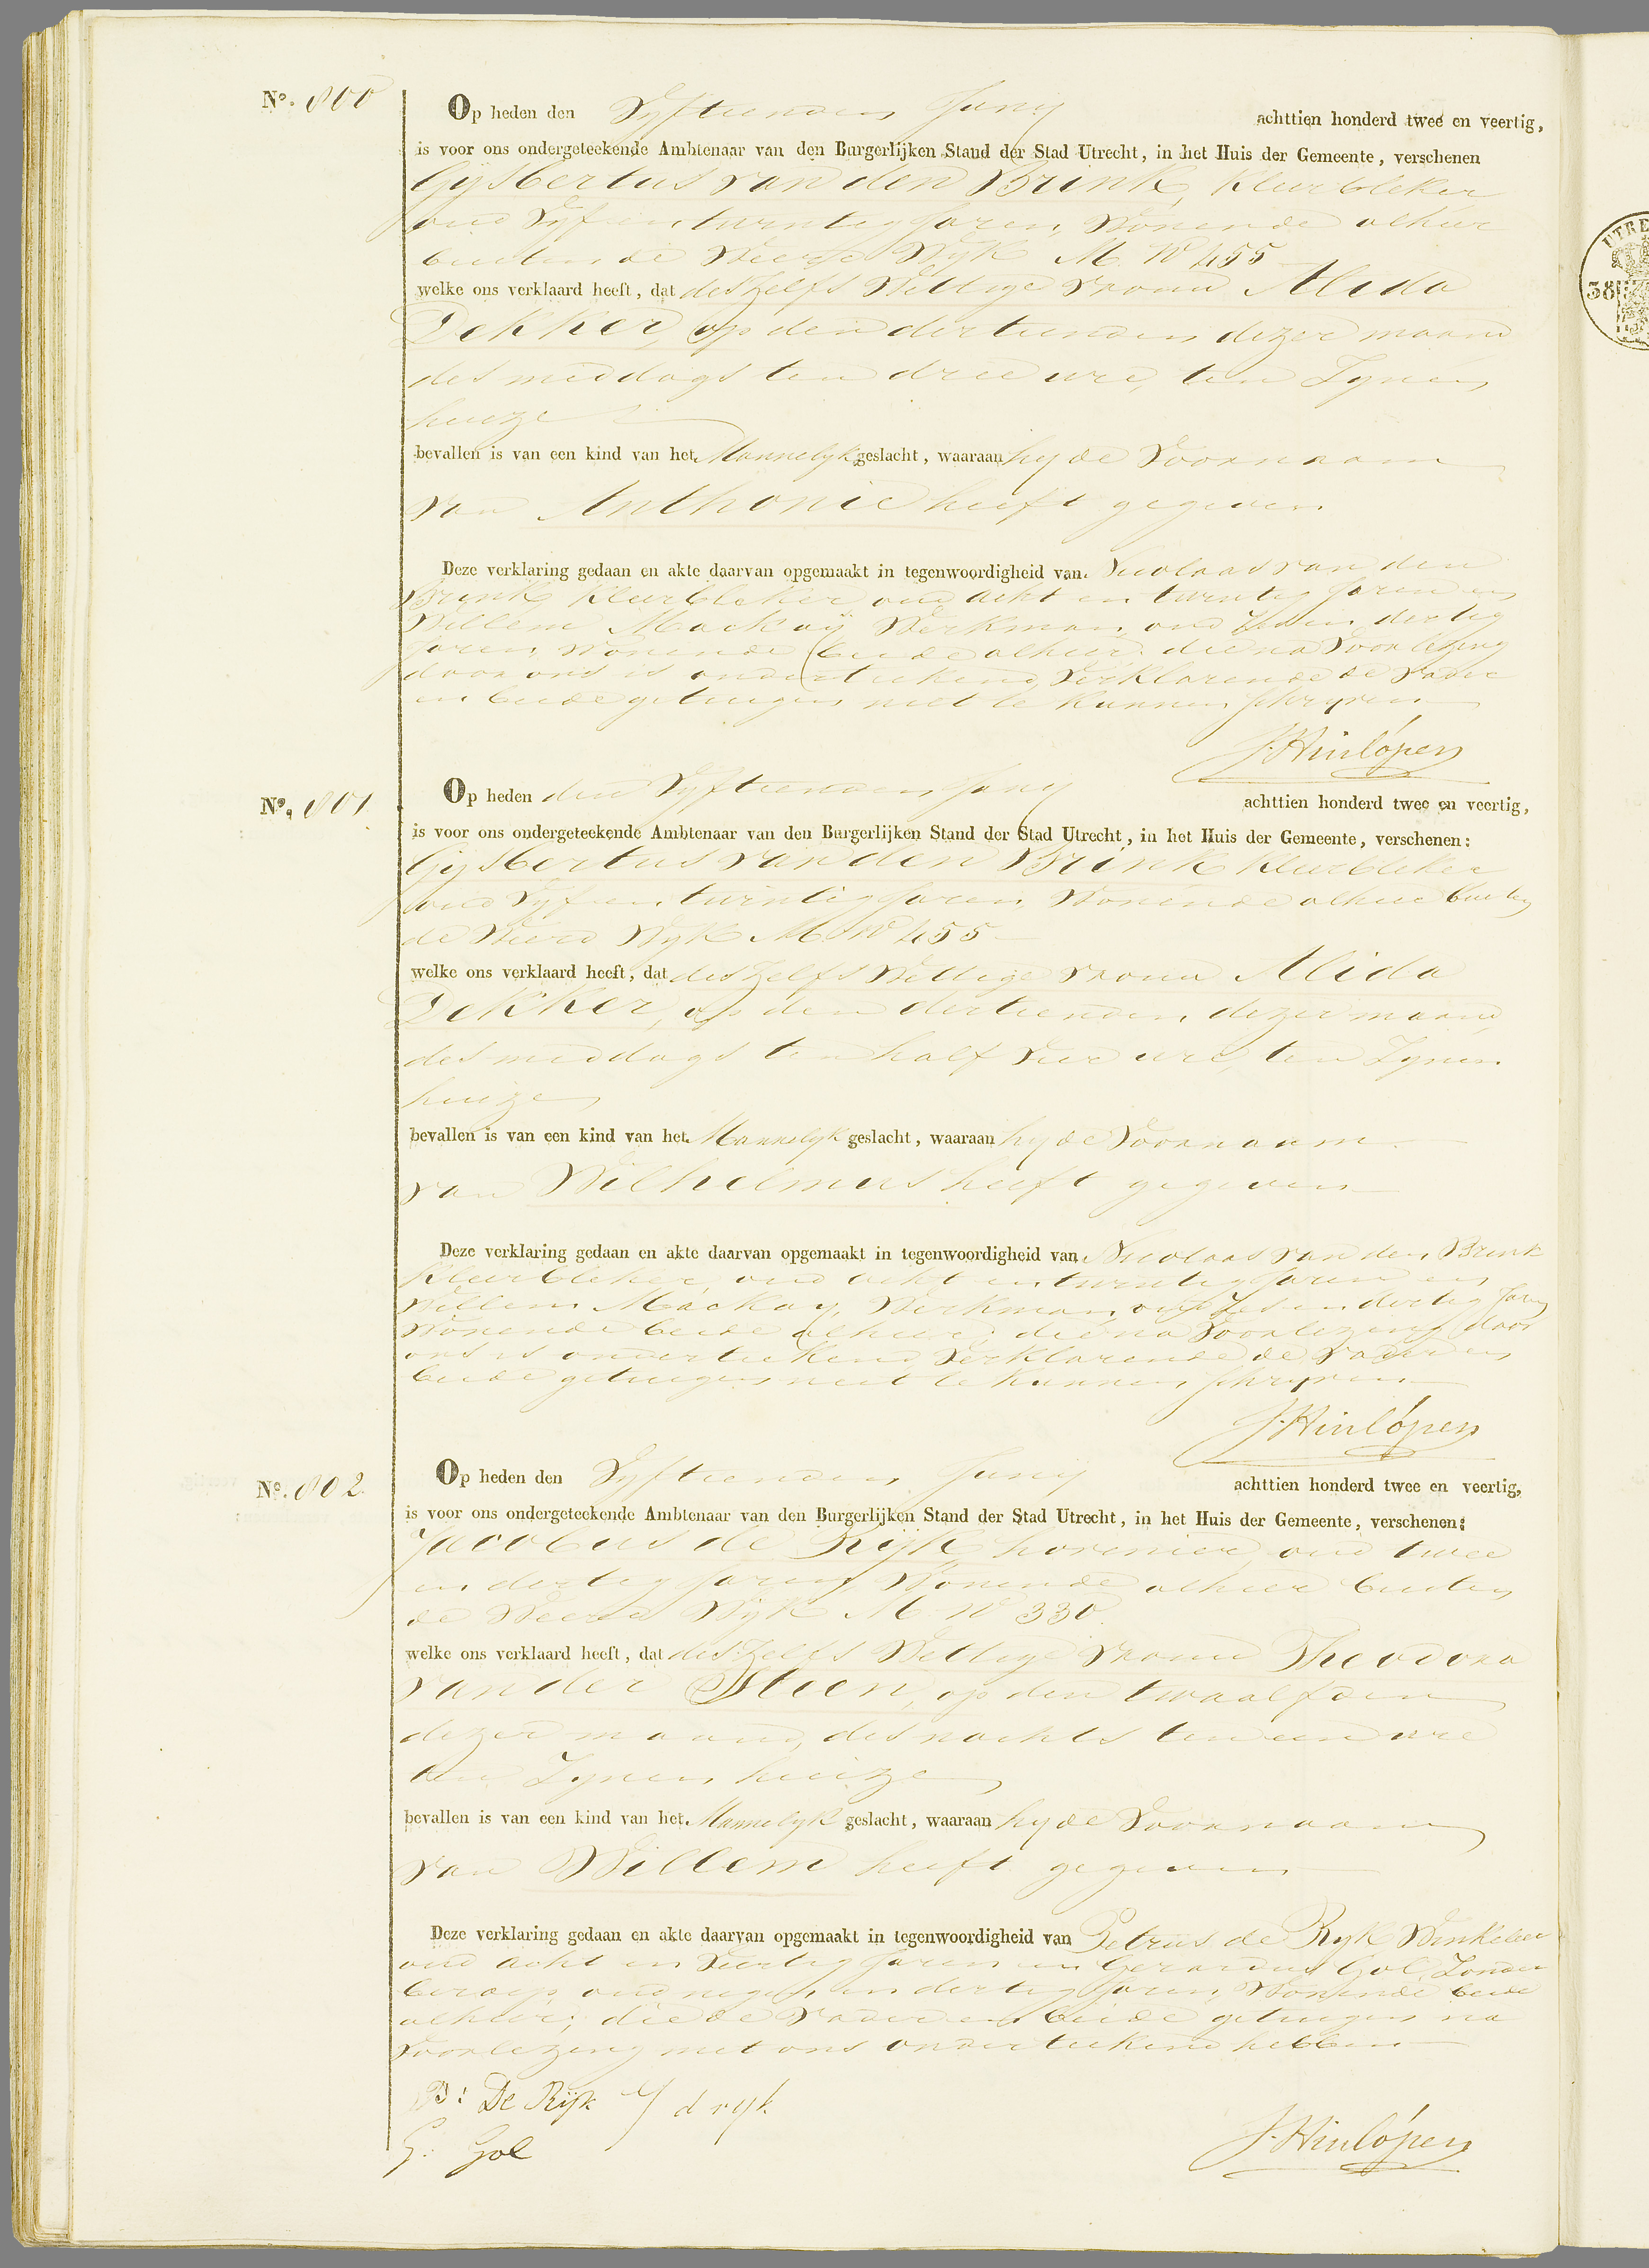 No. 800
Op heden den Vyftienden Juny achttien honderd twee en veertig,
is voor ons ondergeteekende Ambtenaar van den Burgerlijken Stand der Stad Utrecht, in het Huis der Gemeente, verschenen
Gysbertus van den Brink, Kleerbleker
oud Vyf en twintig Jaren, Wonende alhier
buiten de Weerd Wyk M. No 455
welke ons verklaard heeft, dat deszelfs Wettige Vrouw Alida
Dekker, op den dertienden dezer maand
des middags ten drie ure, ten Zynen
huize
bevallen is van een kind van het Mannelyk geslacht, waaraan hy de Voornaam
van Anthonie heeft gegeven
Deze verklaring gedaan en akte daarvan opgemaakt in tegenwoordigheid van Nicolaas van den
Brink Kleerbleker oud acht en twintig Jaren en
Willem Mackay Werkman, oud Zes en dertig
Jaren, Wonende beide alhier; die na Voorlezing
door ons is onderteekend, Verklarende de Vader
en beide getuigen niet te kunnen schryven
J. Hinlópen
No. 801
Op heden den Vyftienden Juny achttien honderd twee en veertig,
is voor ons ondergeteekende Ambtenaar van den Burgerlijken Stand der Stad Utrecht, in het Huis der Gemeente, verschenen:
Gysbertus van den Brink Kleerbleker
oud Vyf en twintig Jaren, Wonende alhier buiten
de Weerd Wyk M. No 455
welke ons verklaard heeft, dat deszelfs Wettige Vrouw Alida
Dekker, op den dertienden dezer maand,
des middags ten half Vier ure, ten Zynen
huize
bevallen is van een kind van het Mannelyk geslacht, waaraan hy de Voornaam
van Wilhelmus heeft gegeven
Deze verklaring gedaan en akte daarvan opgemaakt in tegenwoordigheid van Nicolaas van den Brink
Kleerbleker, oud acht en twintig Jaren en
Willem Mackay, Werkman, oud Zes en dertig Jaren
Wonende beide alhier; die na Voorlezing door
ons is onderteekend, Verklarende de Vader en
beide getuigen niet te kunnen schryven
J. Hinlópen
No. 802
Op heden den Vyftienden Juny achttien honderd twee en veertig,
is voor ons ondergeteekende Ambtenaar van den Burgerlijken Stand der Stad Utrecht, in het Huis der Gemeente, verschenen:
Jacobus de Rijk, hovenier, oud twee
en dertig Jaren, Wonende alhier buiten
de Weerd Wyk M. No 330.
welke ons verklaard heeft, dat deszelfs Wettige Vrouw Theodora
van der Steen, op den twaalfden
dezer maand, des nachts ten een ure
ten Zynen huize
bevallen is van een kind van het Mannelyk geslacht, waaraan hy de Voornaam
van Willem heeft gegeven
Deze verklaring gedaan en akte daarvan opgemaakt in tegenwoordigheid van Petrus de Ryk Winkelier
oud acht en Veertig Jaren en Gerardus Gol, Zonder
beroep, oud negen en dertig Jaren, Wonende beide
alhier; die de Vader en beide getuigen na
Voorlezing met ons onderteekend hebben
P: De Rijk J d ryk
G: Gol
J. Hinlópen
UTRE
38